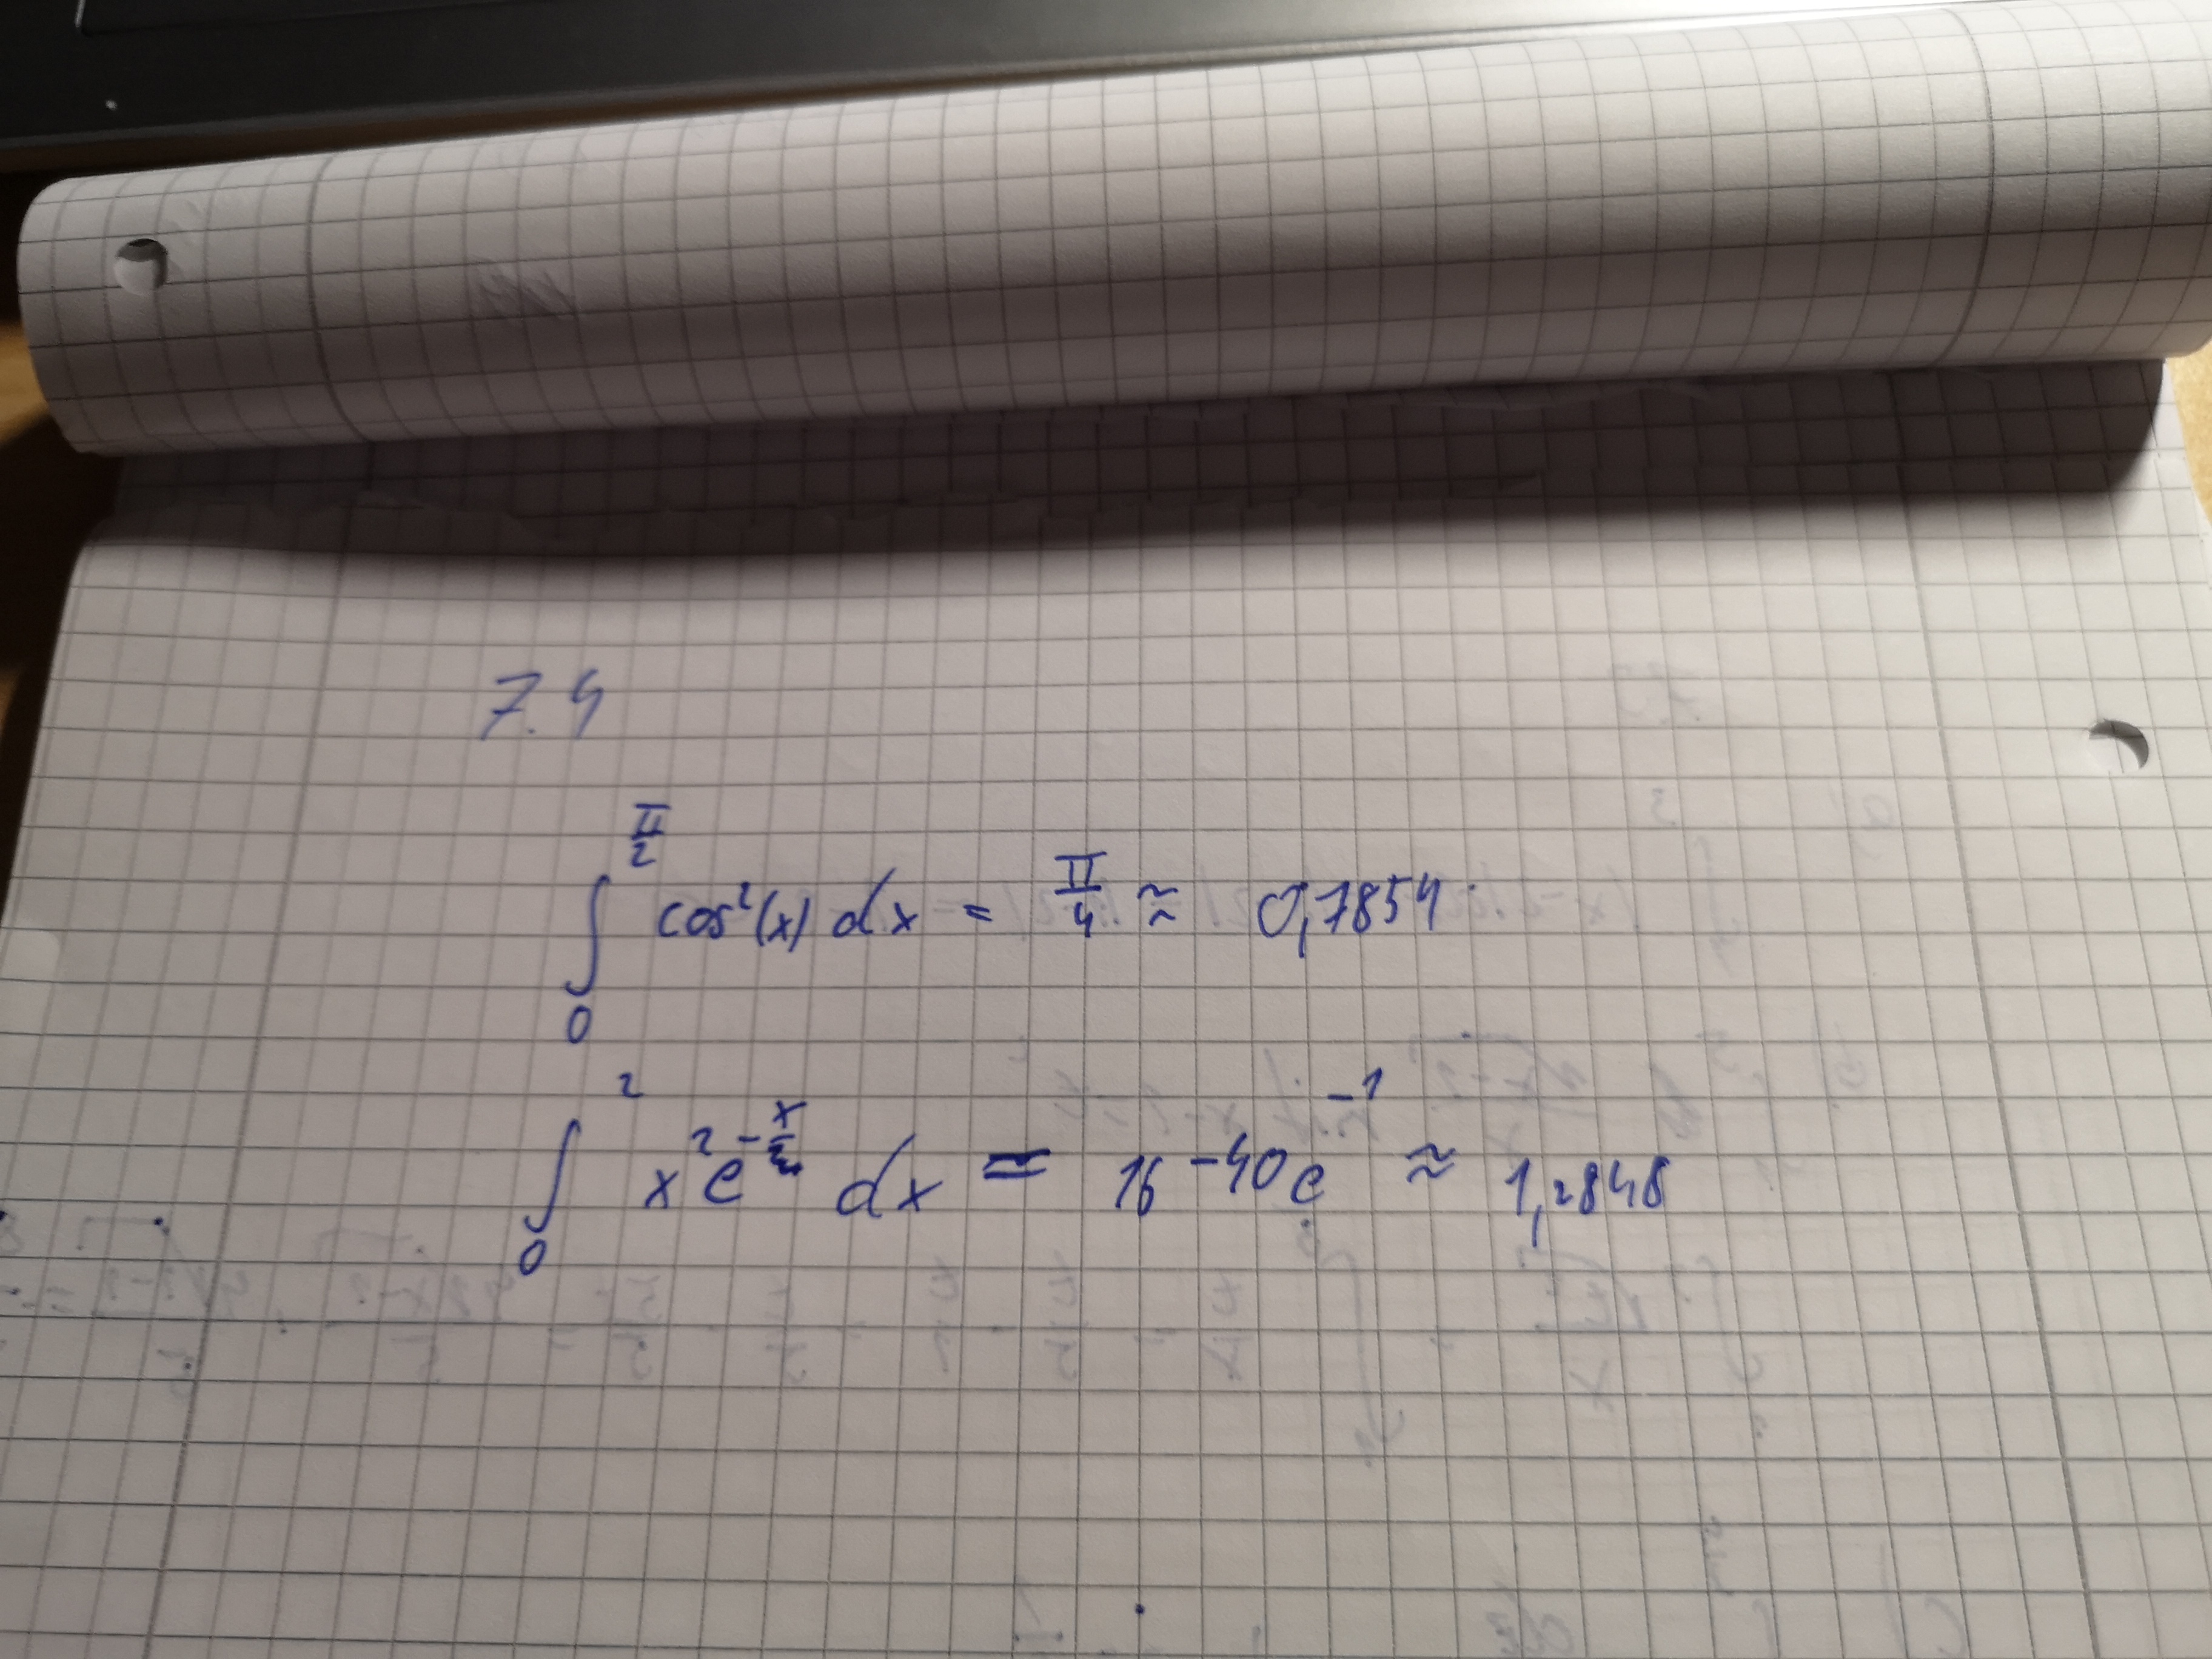 7.4
∫₀^{π/2} cos²(x) dx = π/4 ≈ 0,7854
∫₀² x² e^{-x/2} dx = 16 - 40e^{-1} ≈ 1,2848